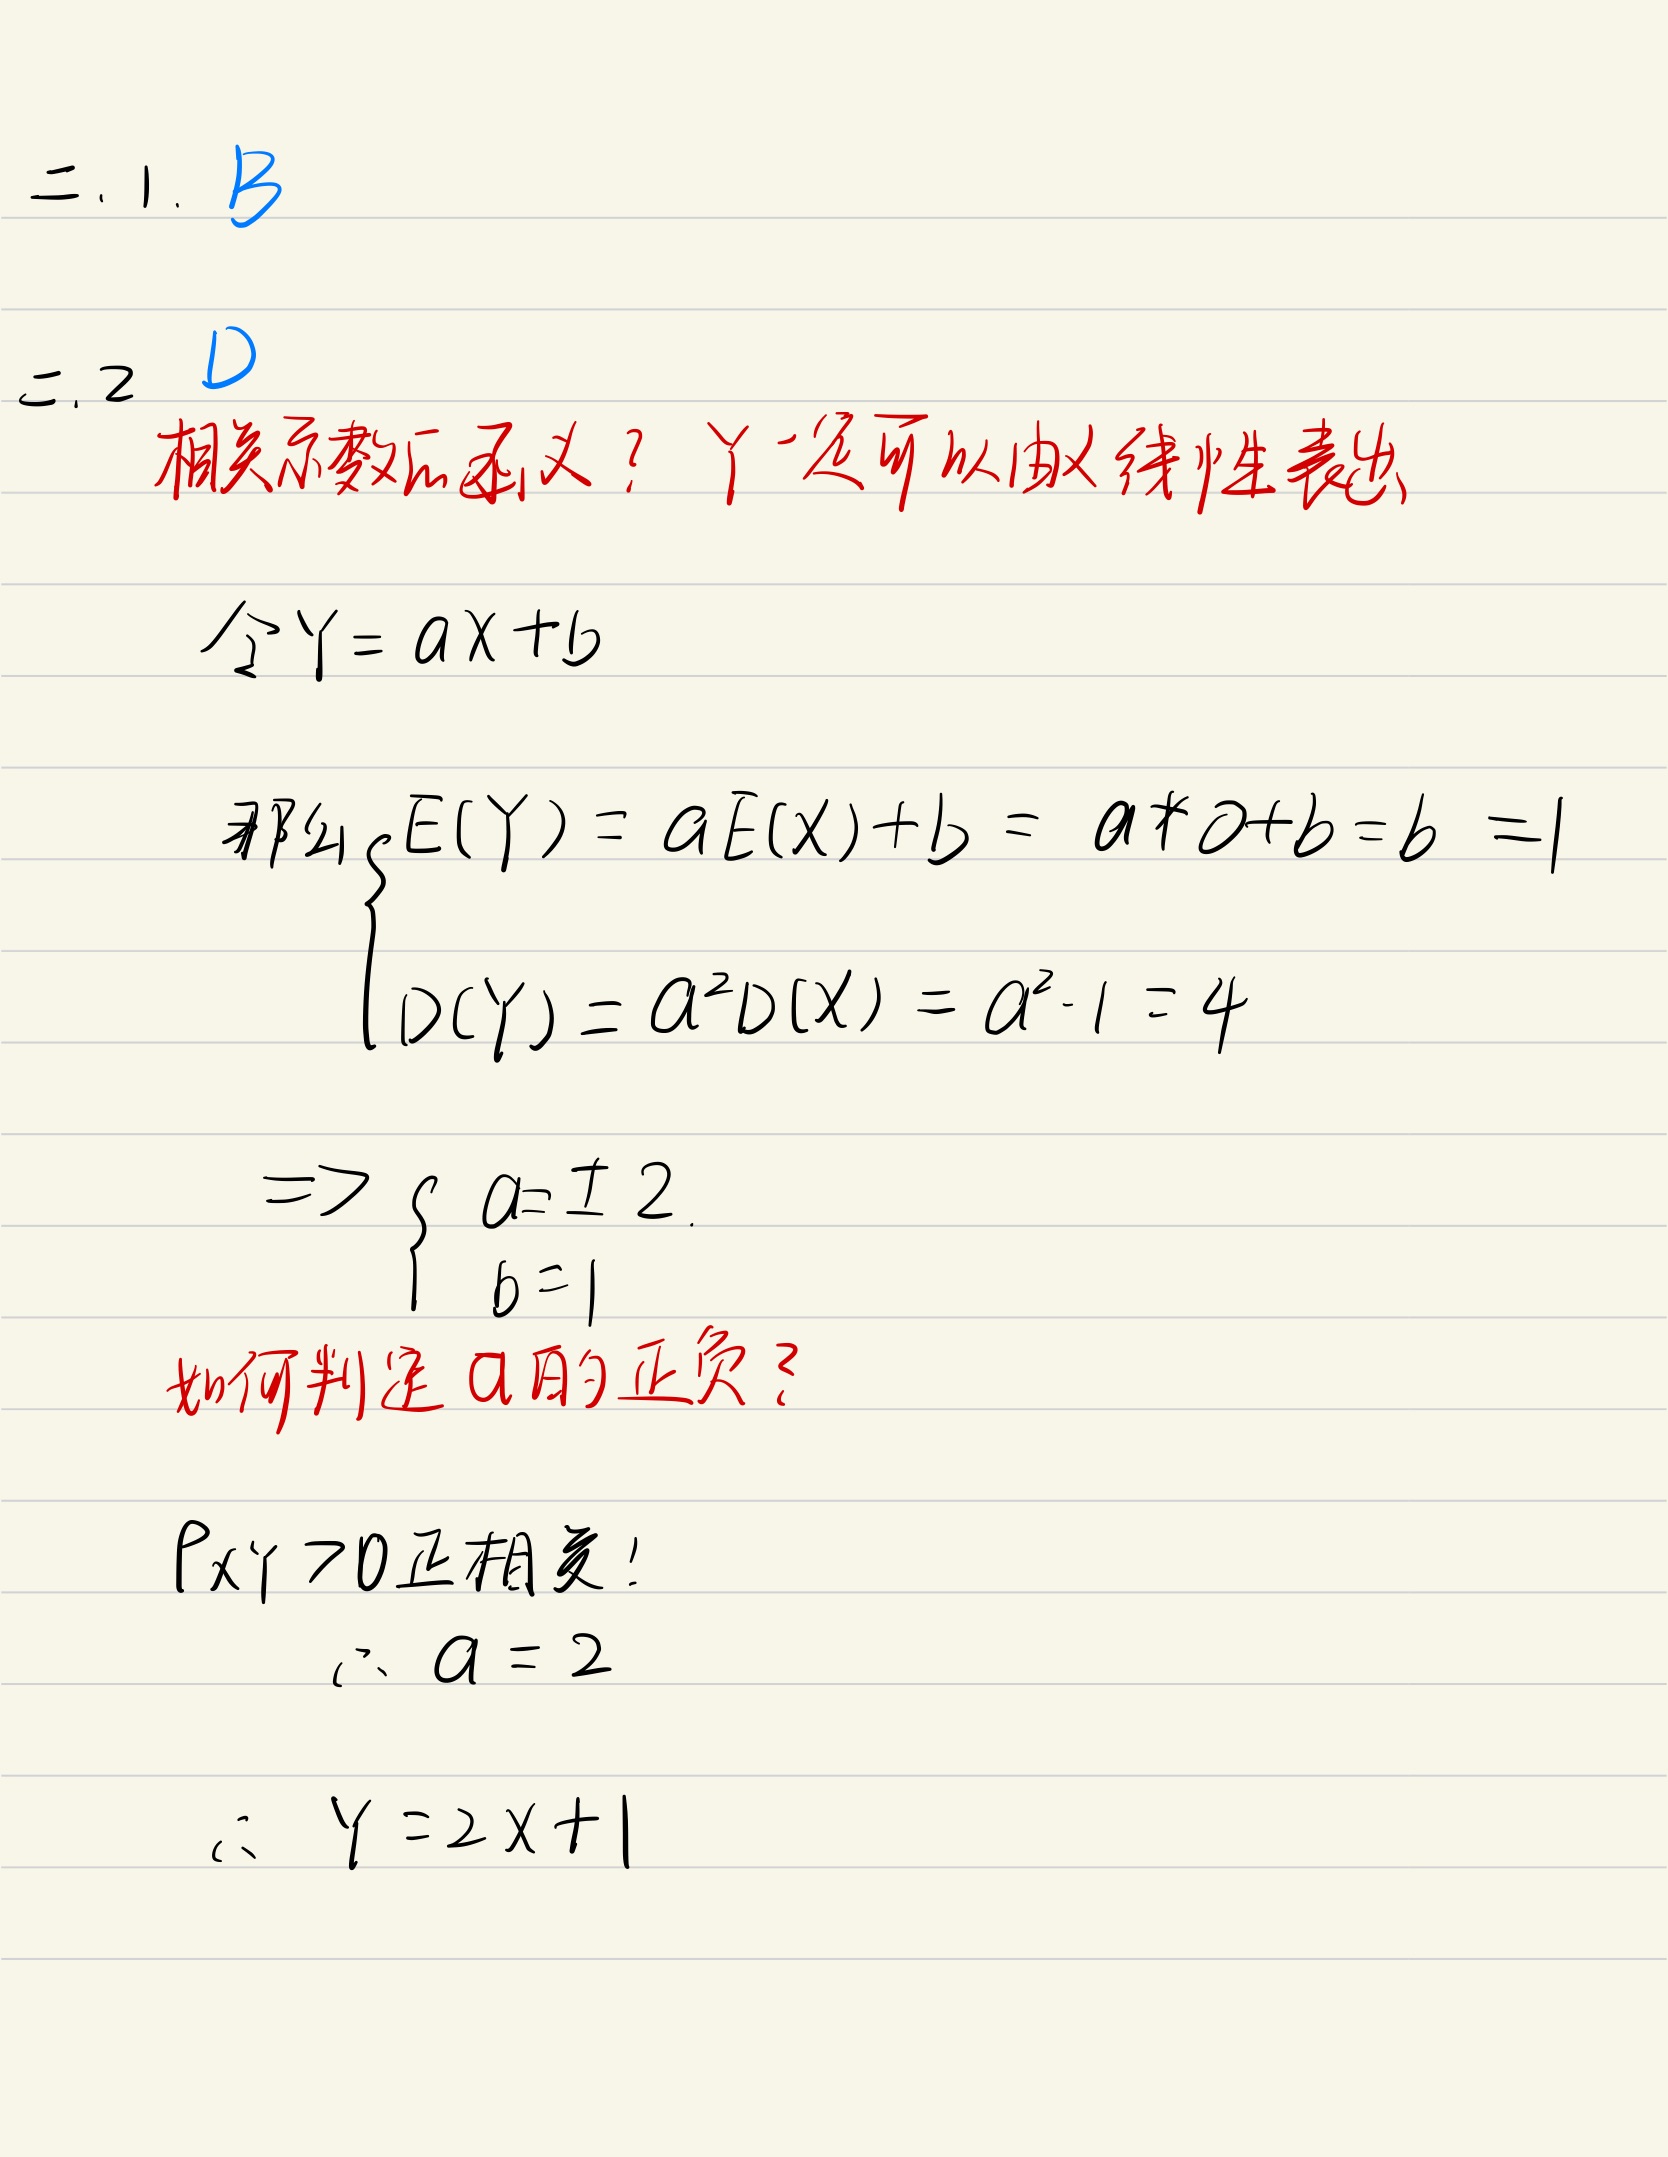 二.1. B
二.2 D
相关系数的函义? Y一定可以由X线性表出
令Y=aX+b
那么{E(Y)=aE(X)+b=a*0+b=b=1
D(Y)=a²D(X)=a²·1=4
=> {a=±2.
b=1
如何判定a的正负?
ρXY>0正相关!
∴ a=2
∴ Y=2X+1